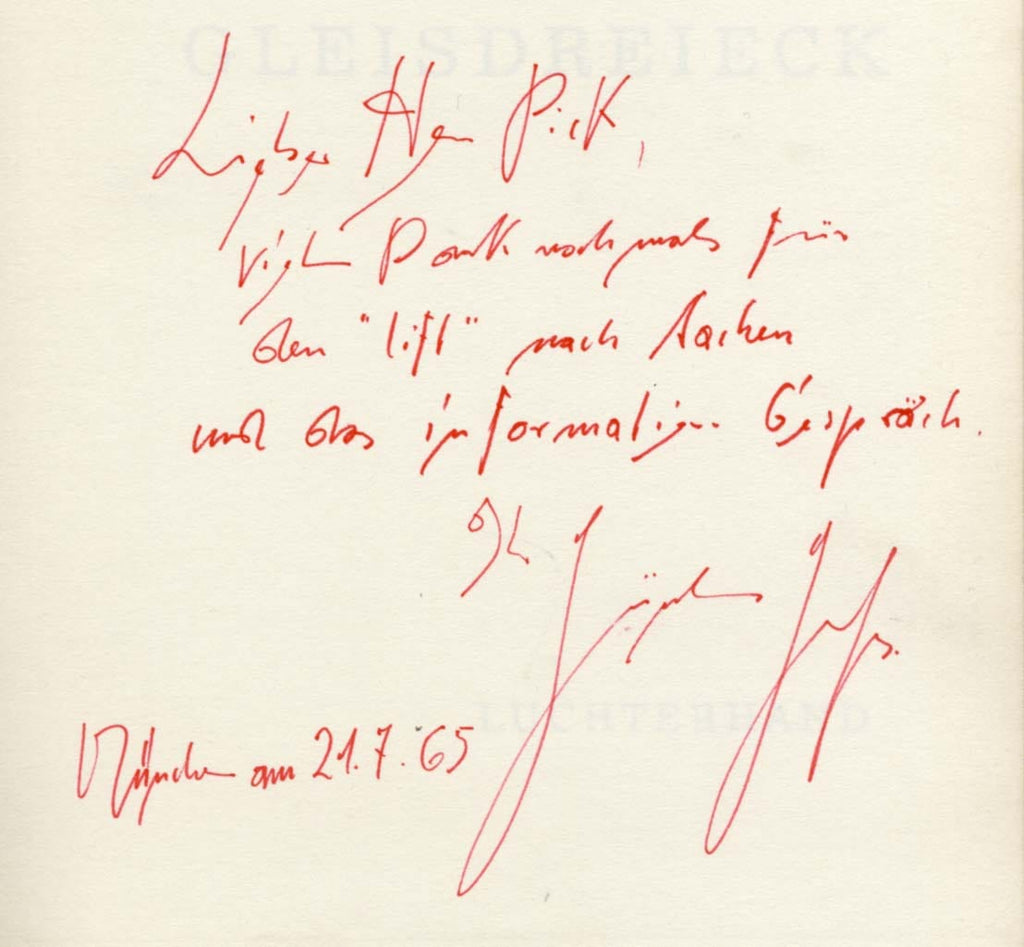 GLEISDREIECK
Lieber Herr Pick,
Vielen Dank nochmals für
den "lift" nach Aachen
und das informative Gespräch.
Ihr Jürgen
LUCHTERHAND
München am 21.7.65